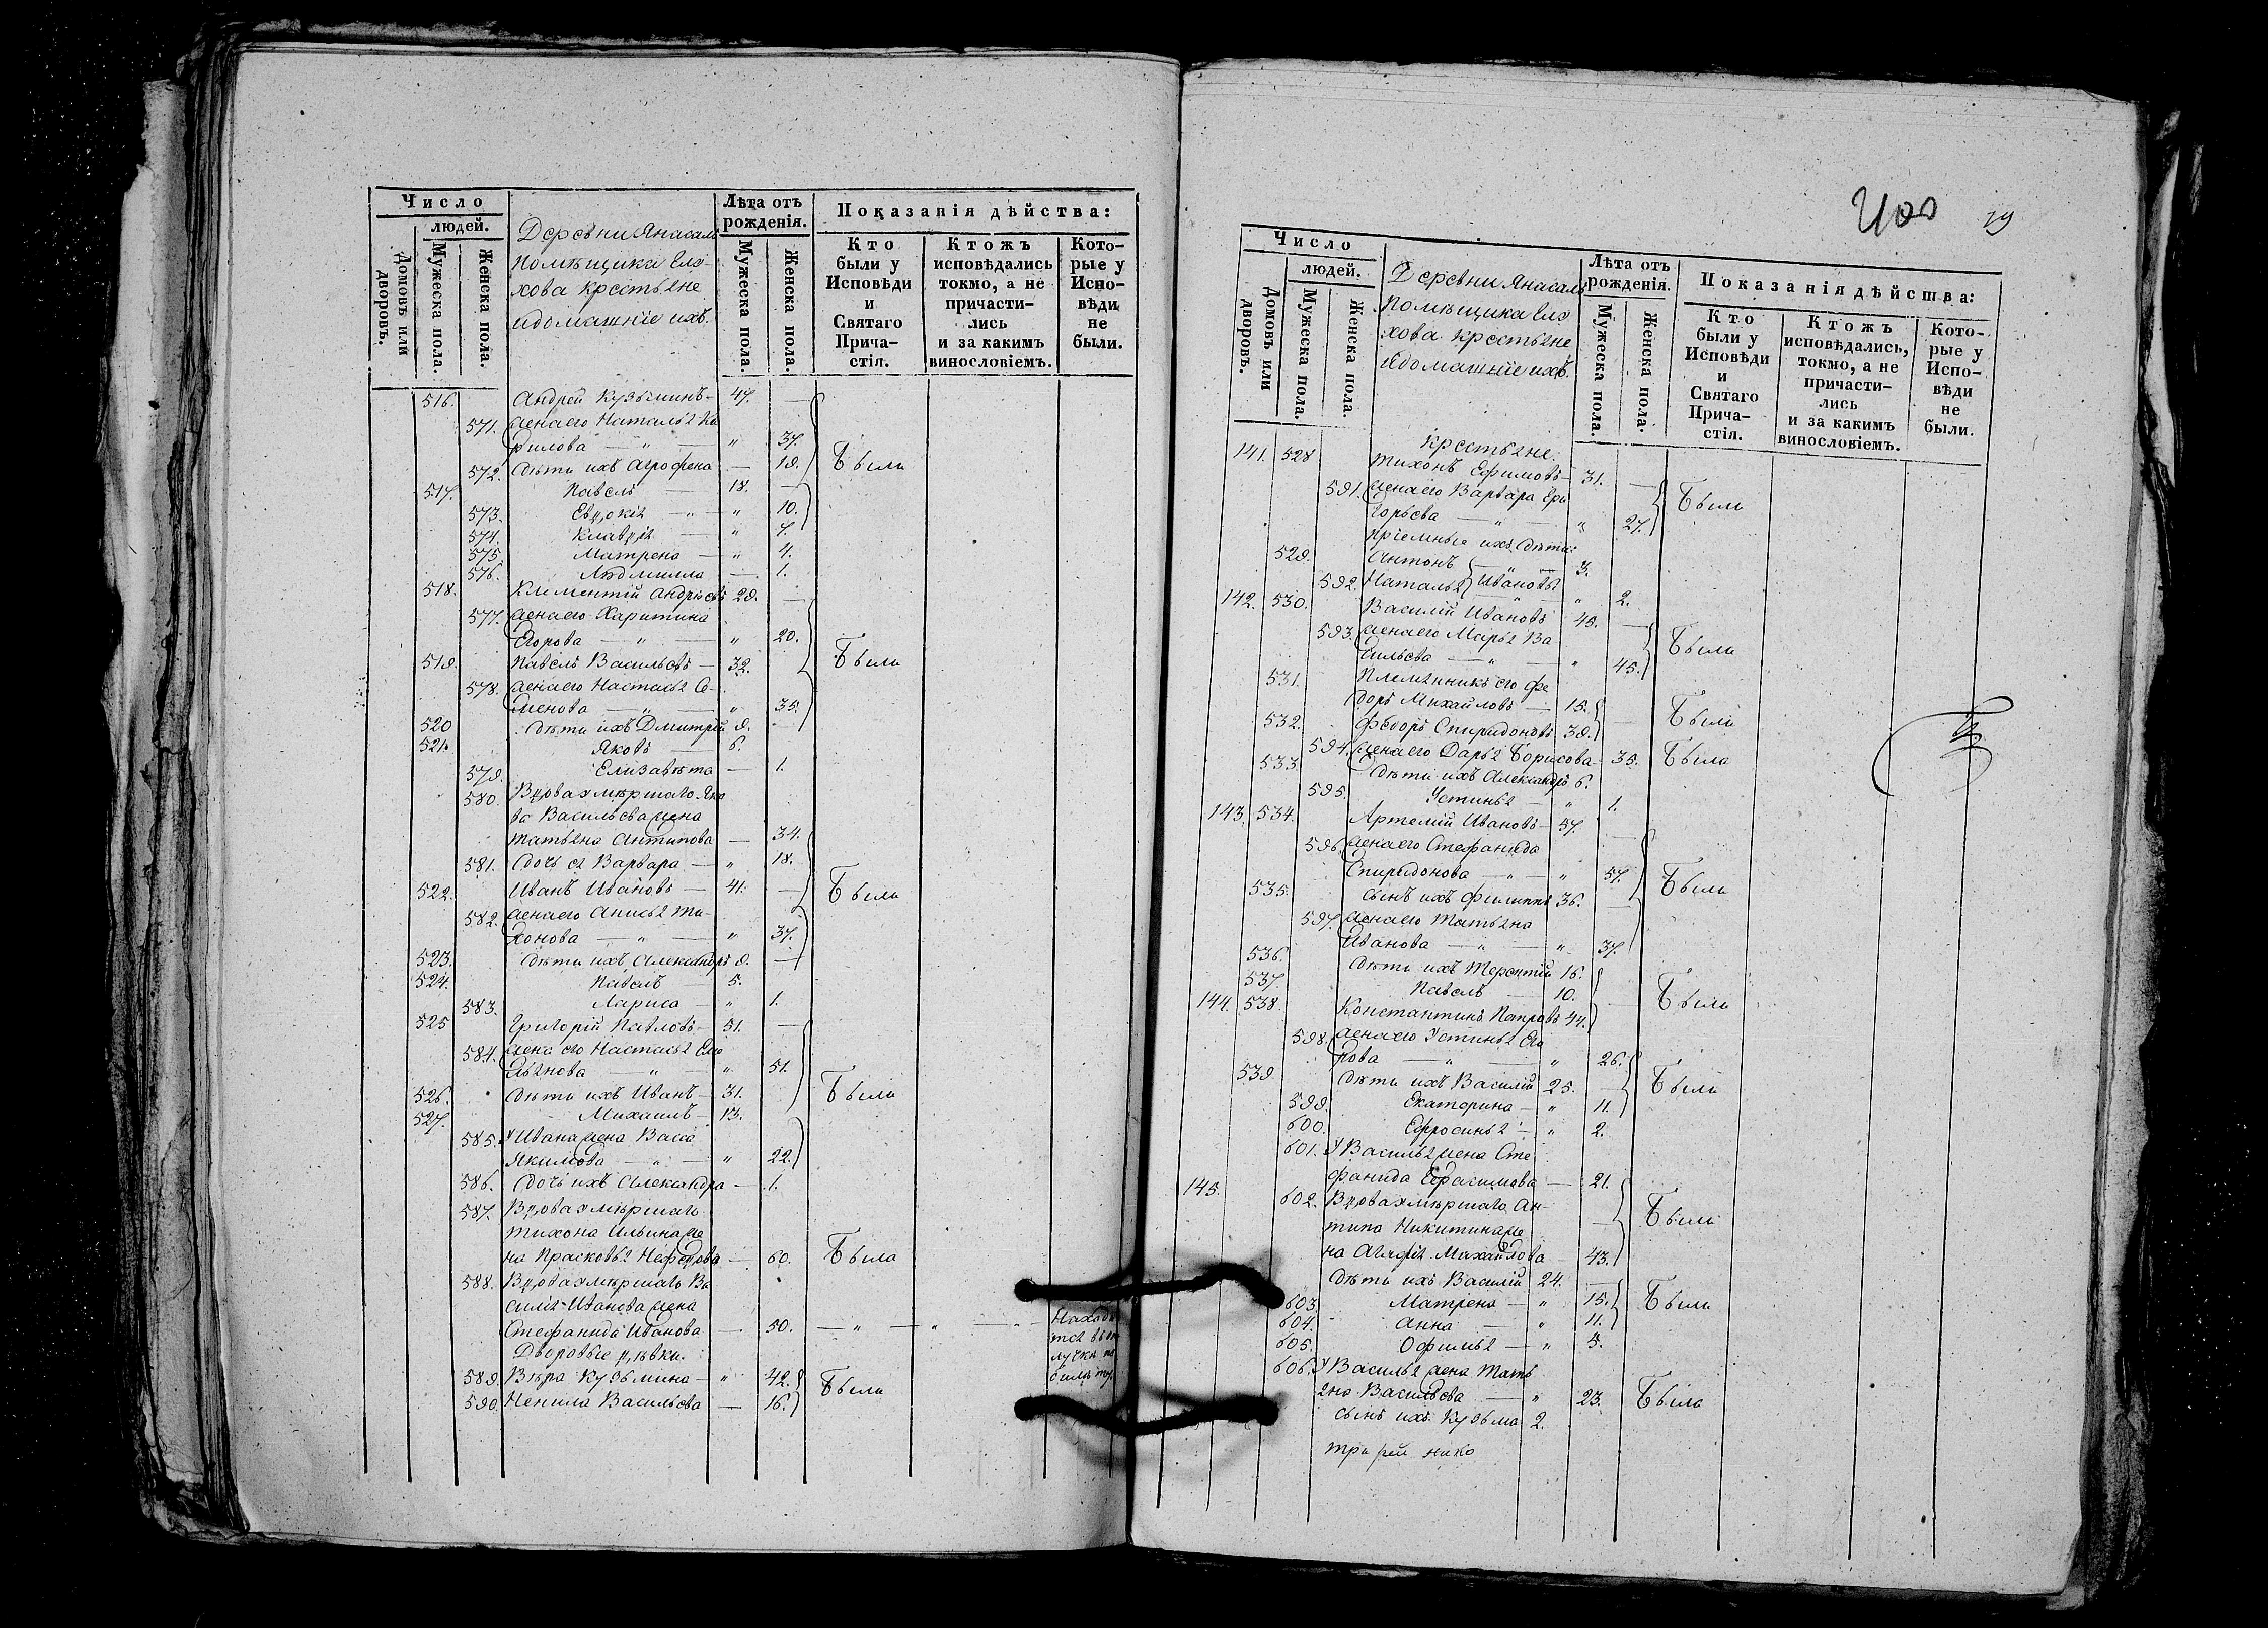 Число
людей.
Домовъ или дворовъ.
Мужеска пола.
Женска пола.
Деревни Янасалъ
помѣщика Ела-
хова крестьяне
и домашніе ихъ.
Лѣта отъ рожденія.
Мужеска пола.
Женска пола.
Показанія дѣйства:
Кто были у Исповѣди и Святаго Прича-стія.
Ктожъ исповѣдались токмо, а не причасти-лись и за какимъ винословіемъ.
Кото-рые у Испо-вѣди не были.
516. Андрей Кузьминъ - 47. —
571. жена его Наталья Ки
рилова — " — " 37.
572. дѣти ихъ Агрофена — 19. были
517. Павелъ — 18. —
573. Евдокія — " — " 10.
574. Клавдія — " 7.
575. Матрена — " 4.
576. Людмилла — 1.
518. Климентій Андріевъ 29. —
577. жена его Харитина
Егорова — " — " 20.
519. Павелъ Васильевъ — 32. были
578. жена его Настасья Се-
менова — " — " 35.
520 дѣти ихъ Дмитрій 9. —
521. Яковъ — 6.
579. Елизавета — 1.
580. Вдова умершаго Яко
ва Васильева жена
Татьяна Антипова — 34.
581. дочь ея Варвара — " 18.
522. Иванъ Ивановъ — 41. — были
582. жена его Анисья Ти-
хонова — " — " 37.
523. дѣти ихъ Александръ 9. —
524. Павелъ — 5.
583. Лариса — " 1.
525 Григорій Павловъ - 51. —
584. жена его Настасья Еме
льянова — " — " 51.
526. дѣти ихъ Иванъ — 31. были
527. Михаилъ — 13.
585. У Ивана жена Васса
Якимова — " — " 22.
586. дочь ихъ Александра — 1.
587. Вдова умершаго
Тихона Ильина же
на Прасковья Нефедова — 60. была
588. Вдова умершаго Ва
силія Иванова жена
Стефанида Иванова — 50. — " — " — "
Находи
тся въ от
лучкѣ по
билету.
Дворовые дѣвки.
589. Вѣра Кузьмина — " 42. были
590. Ненила Васильева — 16.
400 19
Число
людей.
Домовъ или дворовъ.
Мужеска пола.
Женска пола.
Деревни Янасалъ
помѣщика Ела
хова крестьяне
и домашніе ихъ.
Лѣта отъ рожденія.
Мужеска пола.
Женска пола.
Показанія дѣйства:
Кто были у Исповѣди и Святаго Прича-стія.
Ктожъ исповѣдались, токмо, а не причасти-лись и за какимъ винословіемъ.
Кото-рые у Испо-вѣди не были.
крестьяне.
141. 528 Тихонъ Ефимовъ — 31. —
591. жена его Варвара Гри были
горьева — " — " 27.
пріемные ихъ дѣти:
529. Антонъ — " — 3.
592. Наталья Ивановы " 2.
142. 530. Василій Ивановъ 45. —
593. жена его Марья Ва были
сильева — " — " 45.
531. Племянникъ его Фе
доръ Михайловъ — 15. были
532. Федоръ Спиридоновъ 39.
594. жена его Дарья Борисова — 35. была
533. дѣти ихъ Александръ 6.
595. Устинья — " 1.
143. 534. Артемій Ивановъ — 57. —
596. жена его Стефанида
Спиридонова — " — " 57. были
535. сынъ ихъ Филиппъ 36. —
597. жена его Татьяна
Иванова — " — " 37.
536. дѣти ихъ Терентій 16.
537. Павелъ — 10. были
144. 538. Константинъ Петровъ 44.
598. жена его Устинья Его
рова — " — " 26.
539 дѣти ихъ Василій 25. — были
599. Екатерина — " 11.
600. Ефросинья — " 2.
601. У Василья жена Сте
фанида Герасимова — 21.
145. 602. Вдова умершаго Ан-
типа Никитина же — были
на Агафія Михайлова — 43.
дѣти ихъ Василій 24. —
603. Матрена — " 15. были
604. Анна — " 11.
605. Офимья — " 5.
606. У Василья жена Тать
яна Васильева — " 23. была
сынъ ихъ Кузьма 2.